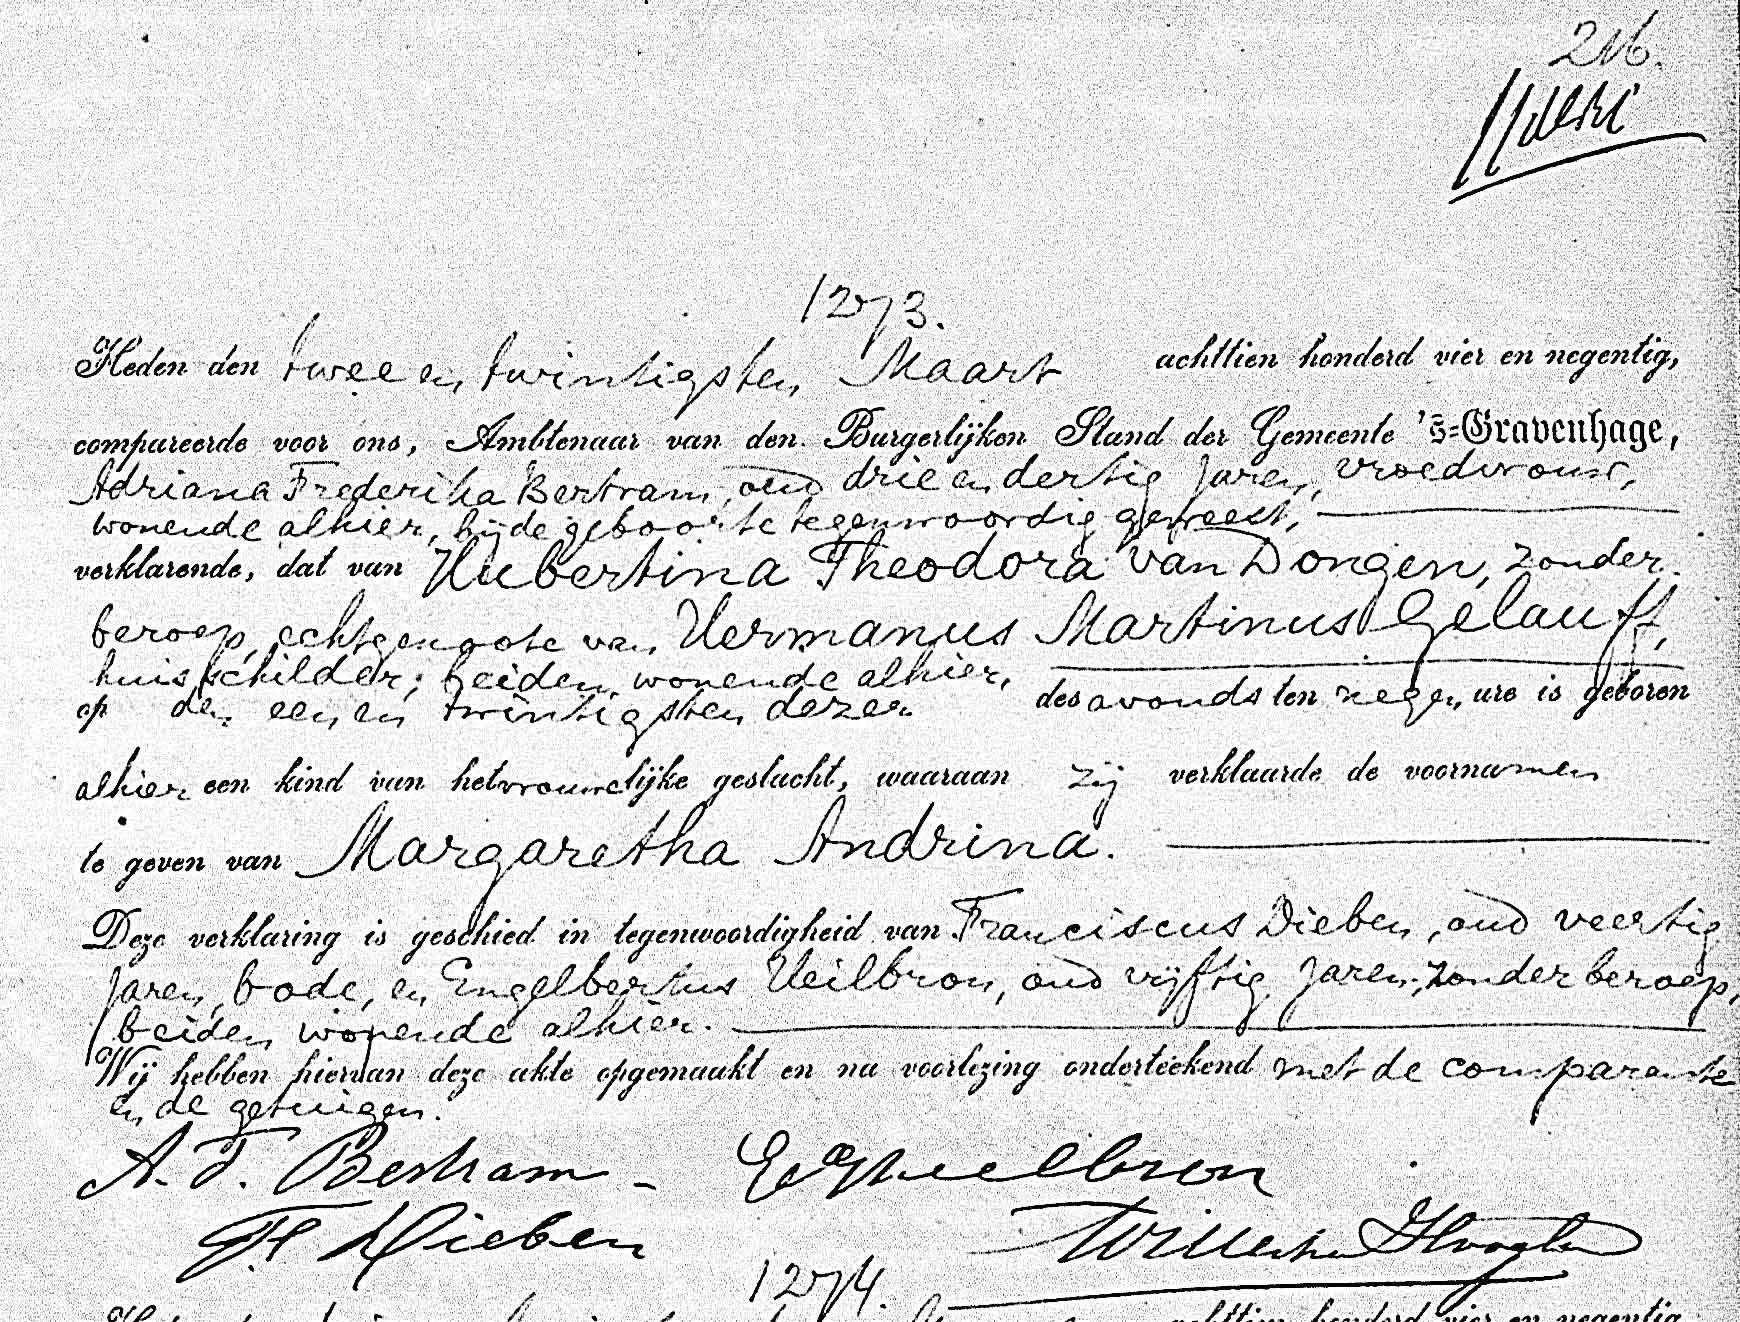 216.
1273.
Heden den twee en twintigsten Maart achttien honderd vier en negentig,
compareerde voor ons, Ambtenaar van den Burgerlijken Stand der Gemeente 's-Gravenhage,
Adriana Frederika Bertram, oud drie en dertig jaren, vroedvrouw,
wonende alhier, bij de geboorte tegenwoordig geweest,
verklarende, dat van Hubertina Theodora van Dongen, zonder
beroep, echtgenoote van Hermanus Martinus Gelauff,
huisschilder; beiden wonende alhier,
op den een en twintigsten dezer des avonds ten negen ure is geboren
alhier een kind van het vrouwelijke geslacht, waaraan zij verklaarde de voornamen
te geven van Margaretha Andrina.
Deze verklaring is geschied in tegenwoordigheid van Franciscus Dieben, oud veertig
jaren, bode, en Engelbertus Heilbron, oud vijftig jaren, zonder beroep,
beiden wonende alhier.
Wij hebben hiervan deze akte opgemaakt en na voorlezing onderteekend met de comparante
en de getuigen.
A. F. Bertram E Heilbron
F. Dieben
1274.
achttien honderd vier en negentig